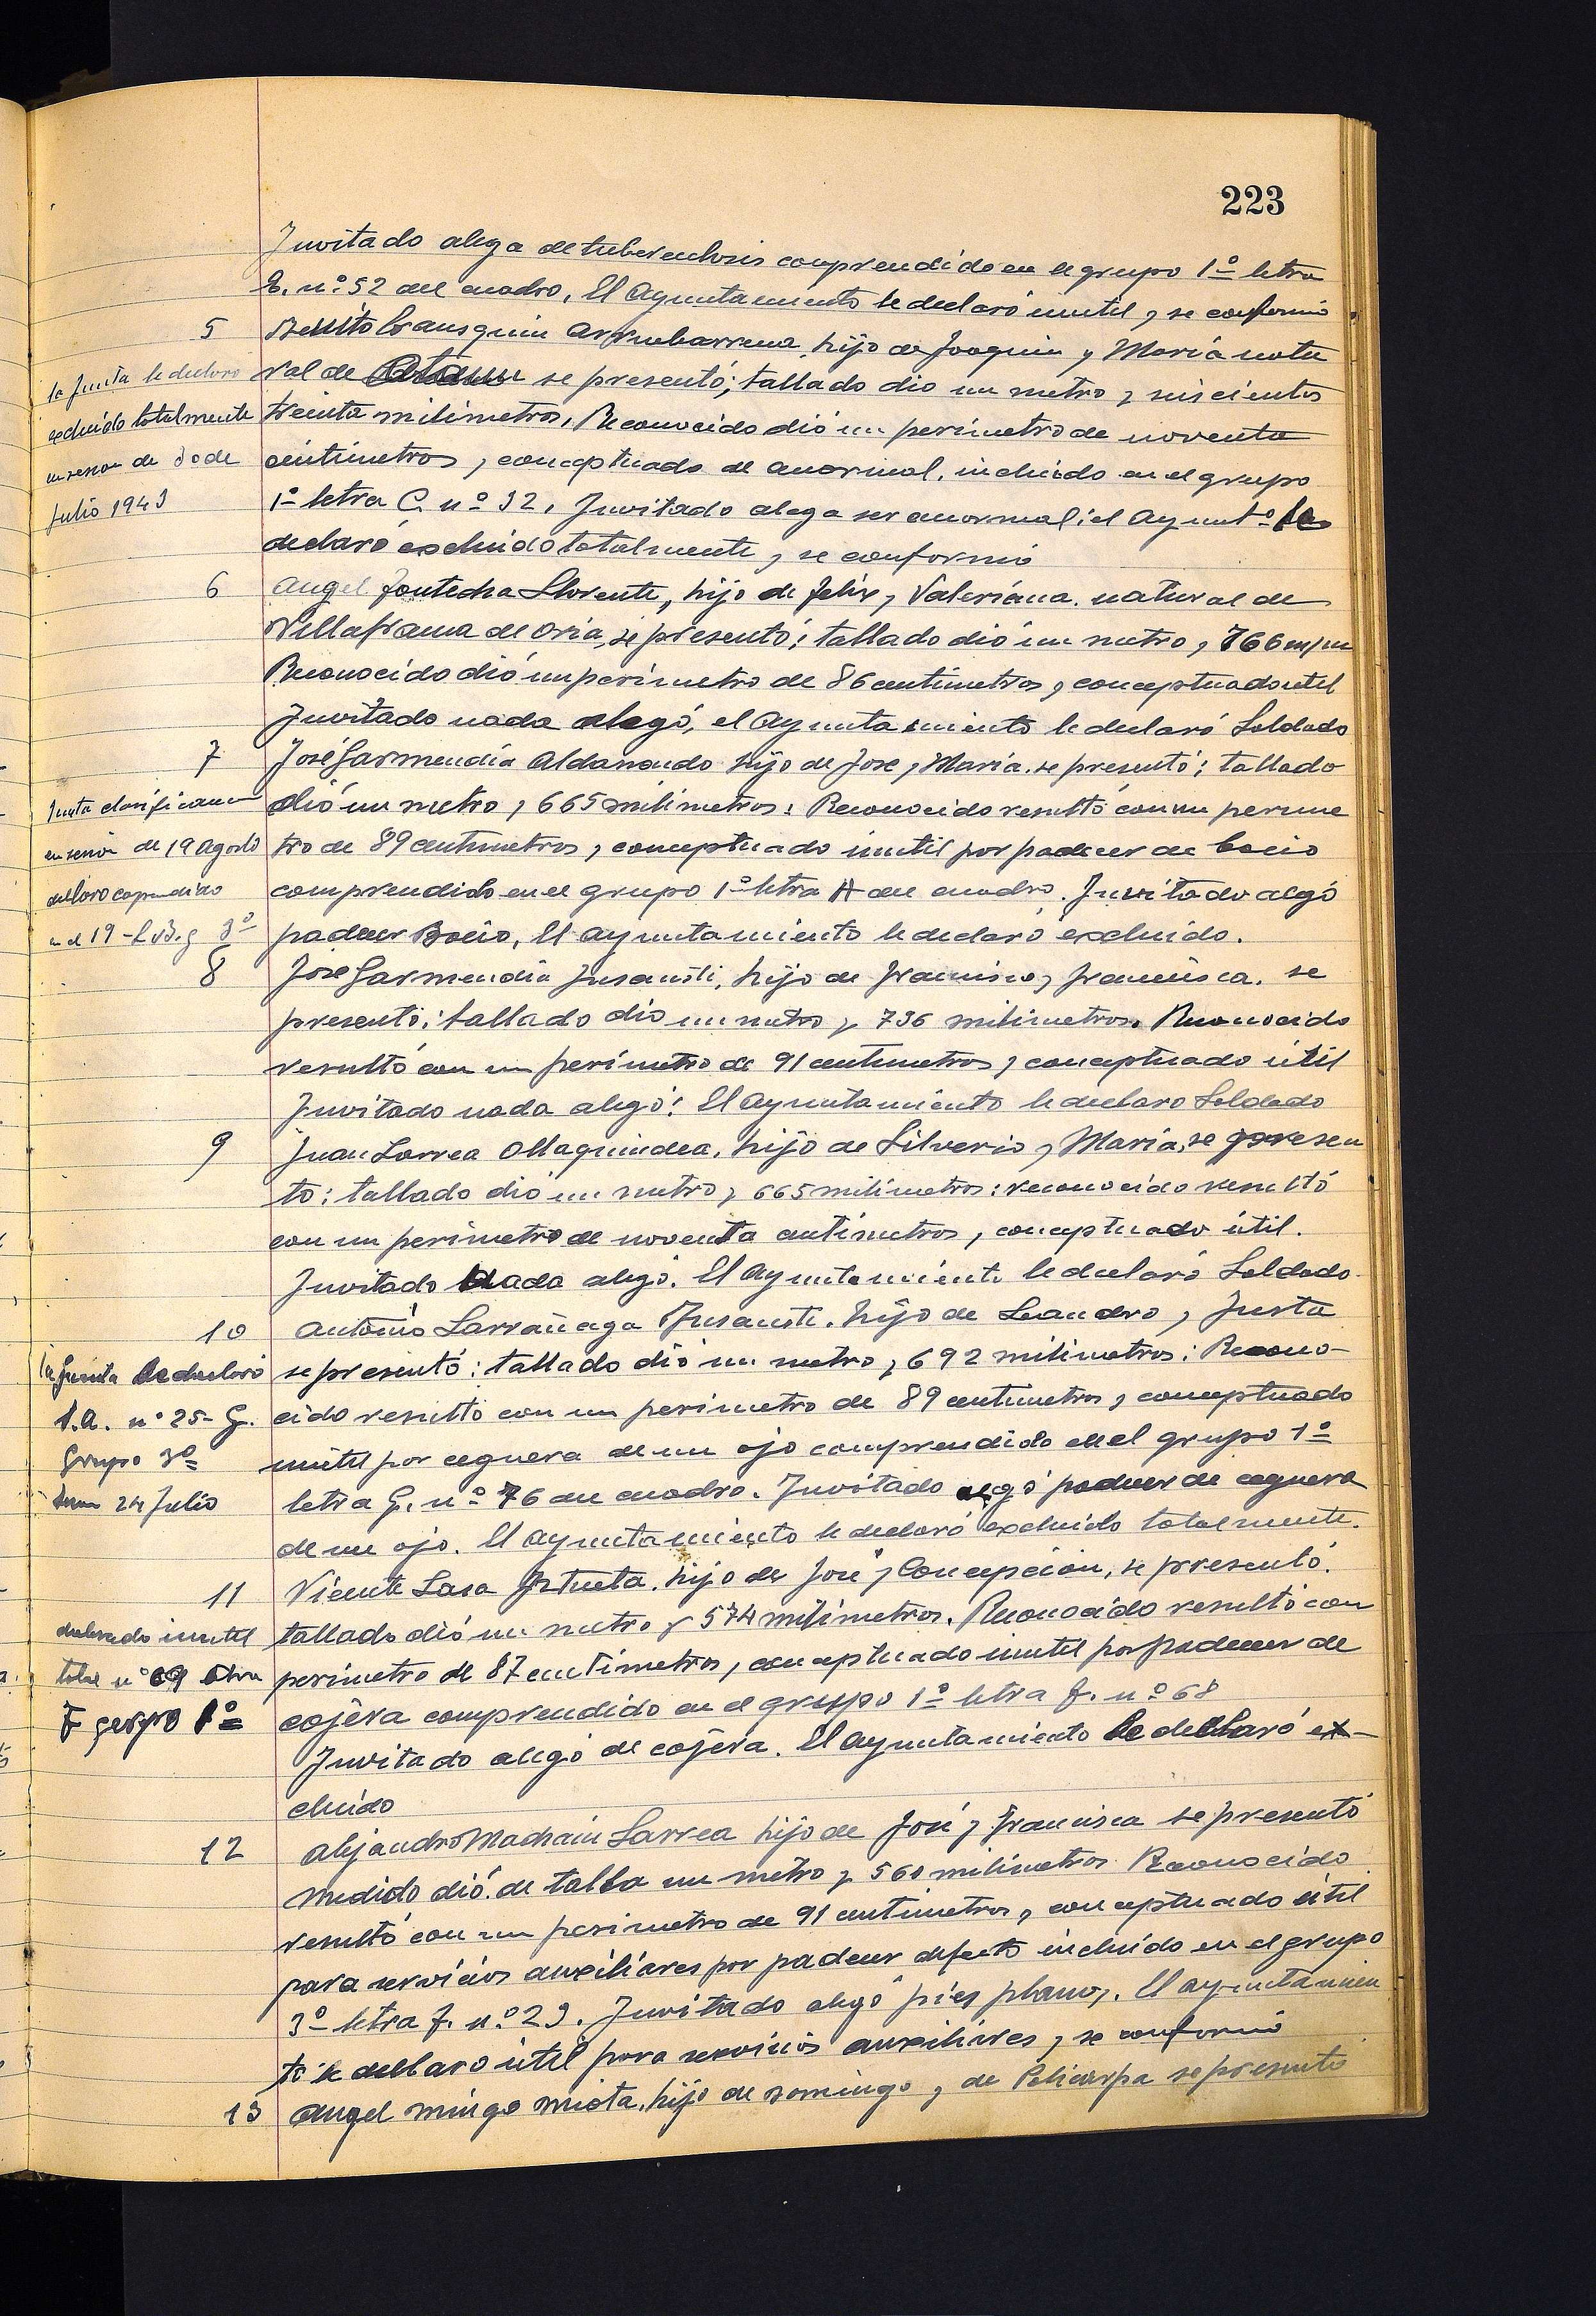 223
Invitado alega de tuberculosis comprendido en el grupo 1º letra
E. nº 52 del cuadro, El Ayuntamiento le declaró inutil y se conformó
5
Benito Arruebarrena, hijo de Joaquin y María natu
ral de Ataun se presentó; tallado dio un metro y seiscientos
treinta milimetros, Reconocido dió un perimetro de noventa
centimetros, conceptuado de anormal, incluido en el grupo
1º letra C. nº 32, Invitado alega ser anormal: el Ayuntº le
declaró excluido totalmente y se conformó
la Junta le declaro
excluido totalmente
en sesion de 30 de
Julio 1943
6
Angel Fontecha Llorente, hijo de Felix y Valeriana. natural de
Villafranca de Oria, se presentó: tallado dió un metro y 766 m/m
Reconocido dió un perímetro de 86 centimetros y conceptuado util
Invitado nada alegó, el Ayuntamiento le declaró Soldado
7
José Garmendia Aldanondo hijo de Jose y Maria. se presentó; tallado
dió un metro y 665 milimetros: Reconocido resultó con un perime
tro de 89 centimetros y conceptuado inutil por padecer de bocio
comprendido en el grupo 1º letra A del cuadro. Invitado algó
padecer Bocio, El ayuntamiento le declaró excluido.
Junta clasificacion
en sesión de 19 Agosto
en el 19 - 3º
8
José Garmendia Insausti, hijo de Francisco y Francisca. se
presentó: tallado dio un metro y 736 milimetros. Reconocido
resultó con un perímetro de 91 centimetros y conceptuado útil
Invitado nada alegó: El Ayuntamiento le declaro Soldado
9
Juan Larrea Ollaquindea, hijo de Silverio y María, se presen
to: tallado dió un metro y 665 milimetros: reconocido resultó
con un perimetro de noventa centimetros, conceptuado útil.
Invitado Nada alegó. El Ayuntamiento le declaró Soldado
10
Antonio Larrañaga Insausti. hijo de Leandro y Justa
se presentó: tallado dió un metro y 692 milimetros: Recono-
cido resultó con un perimetro de 89 centimetros y conceptuado
inutil por ceguera de un ojo comprendido en el grupo 1º
letra G. nº 76 del cuadro. Invitado algó padecer de ceguera
de un ojo. El ayuntamiento le declaró excluido totalmente.
la Junta le declaró
S.A. nº 25- G.
Grupo 3º
24 Julio
11
Vicente Lasa Iztueta. hijo de José y Concepción, se presentó.
tallado dió un metro y 574 milimetros. Reconocido resultó con
perimetro de 87 centimetros, conceptuado inutil por padecer de
cojera comprendido en el gruppo 1º letra F. nº 68
Invitado alegó de cojera. El ayuntamiento le declaró ex-
cluido
declarado inutil
total nº 69 letra
F grupo 1º
12
Alejandro Machain Larrea hijo de José y Francisca se presentó
medido dió de talla un metro y 560 milimetros Reconocido
resultó con un perimetro de 91 centimetros, conceptuado útil
para servicios auxiliares por padecer defecto incluido en el grupo
3º letra F. nº 23. Invitado alegó pies planos. El ayuntamien
to le declaro útil para servicios auxiliares, y se conformó
13
Angel Mingo Miota, hijo de Domingo y de Policarpa se presentó